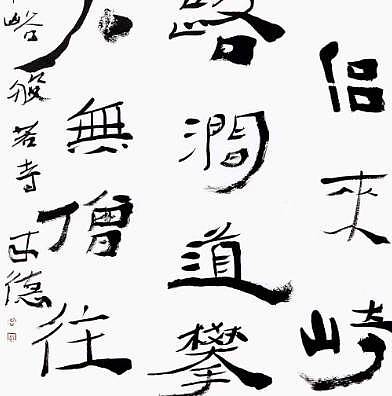 侶來崎
路澗道攀
無僧往
般若寺 古德